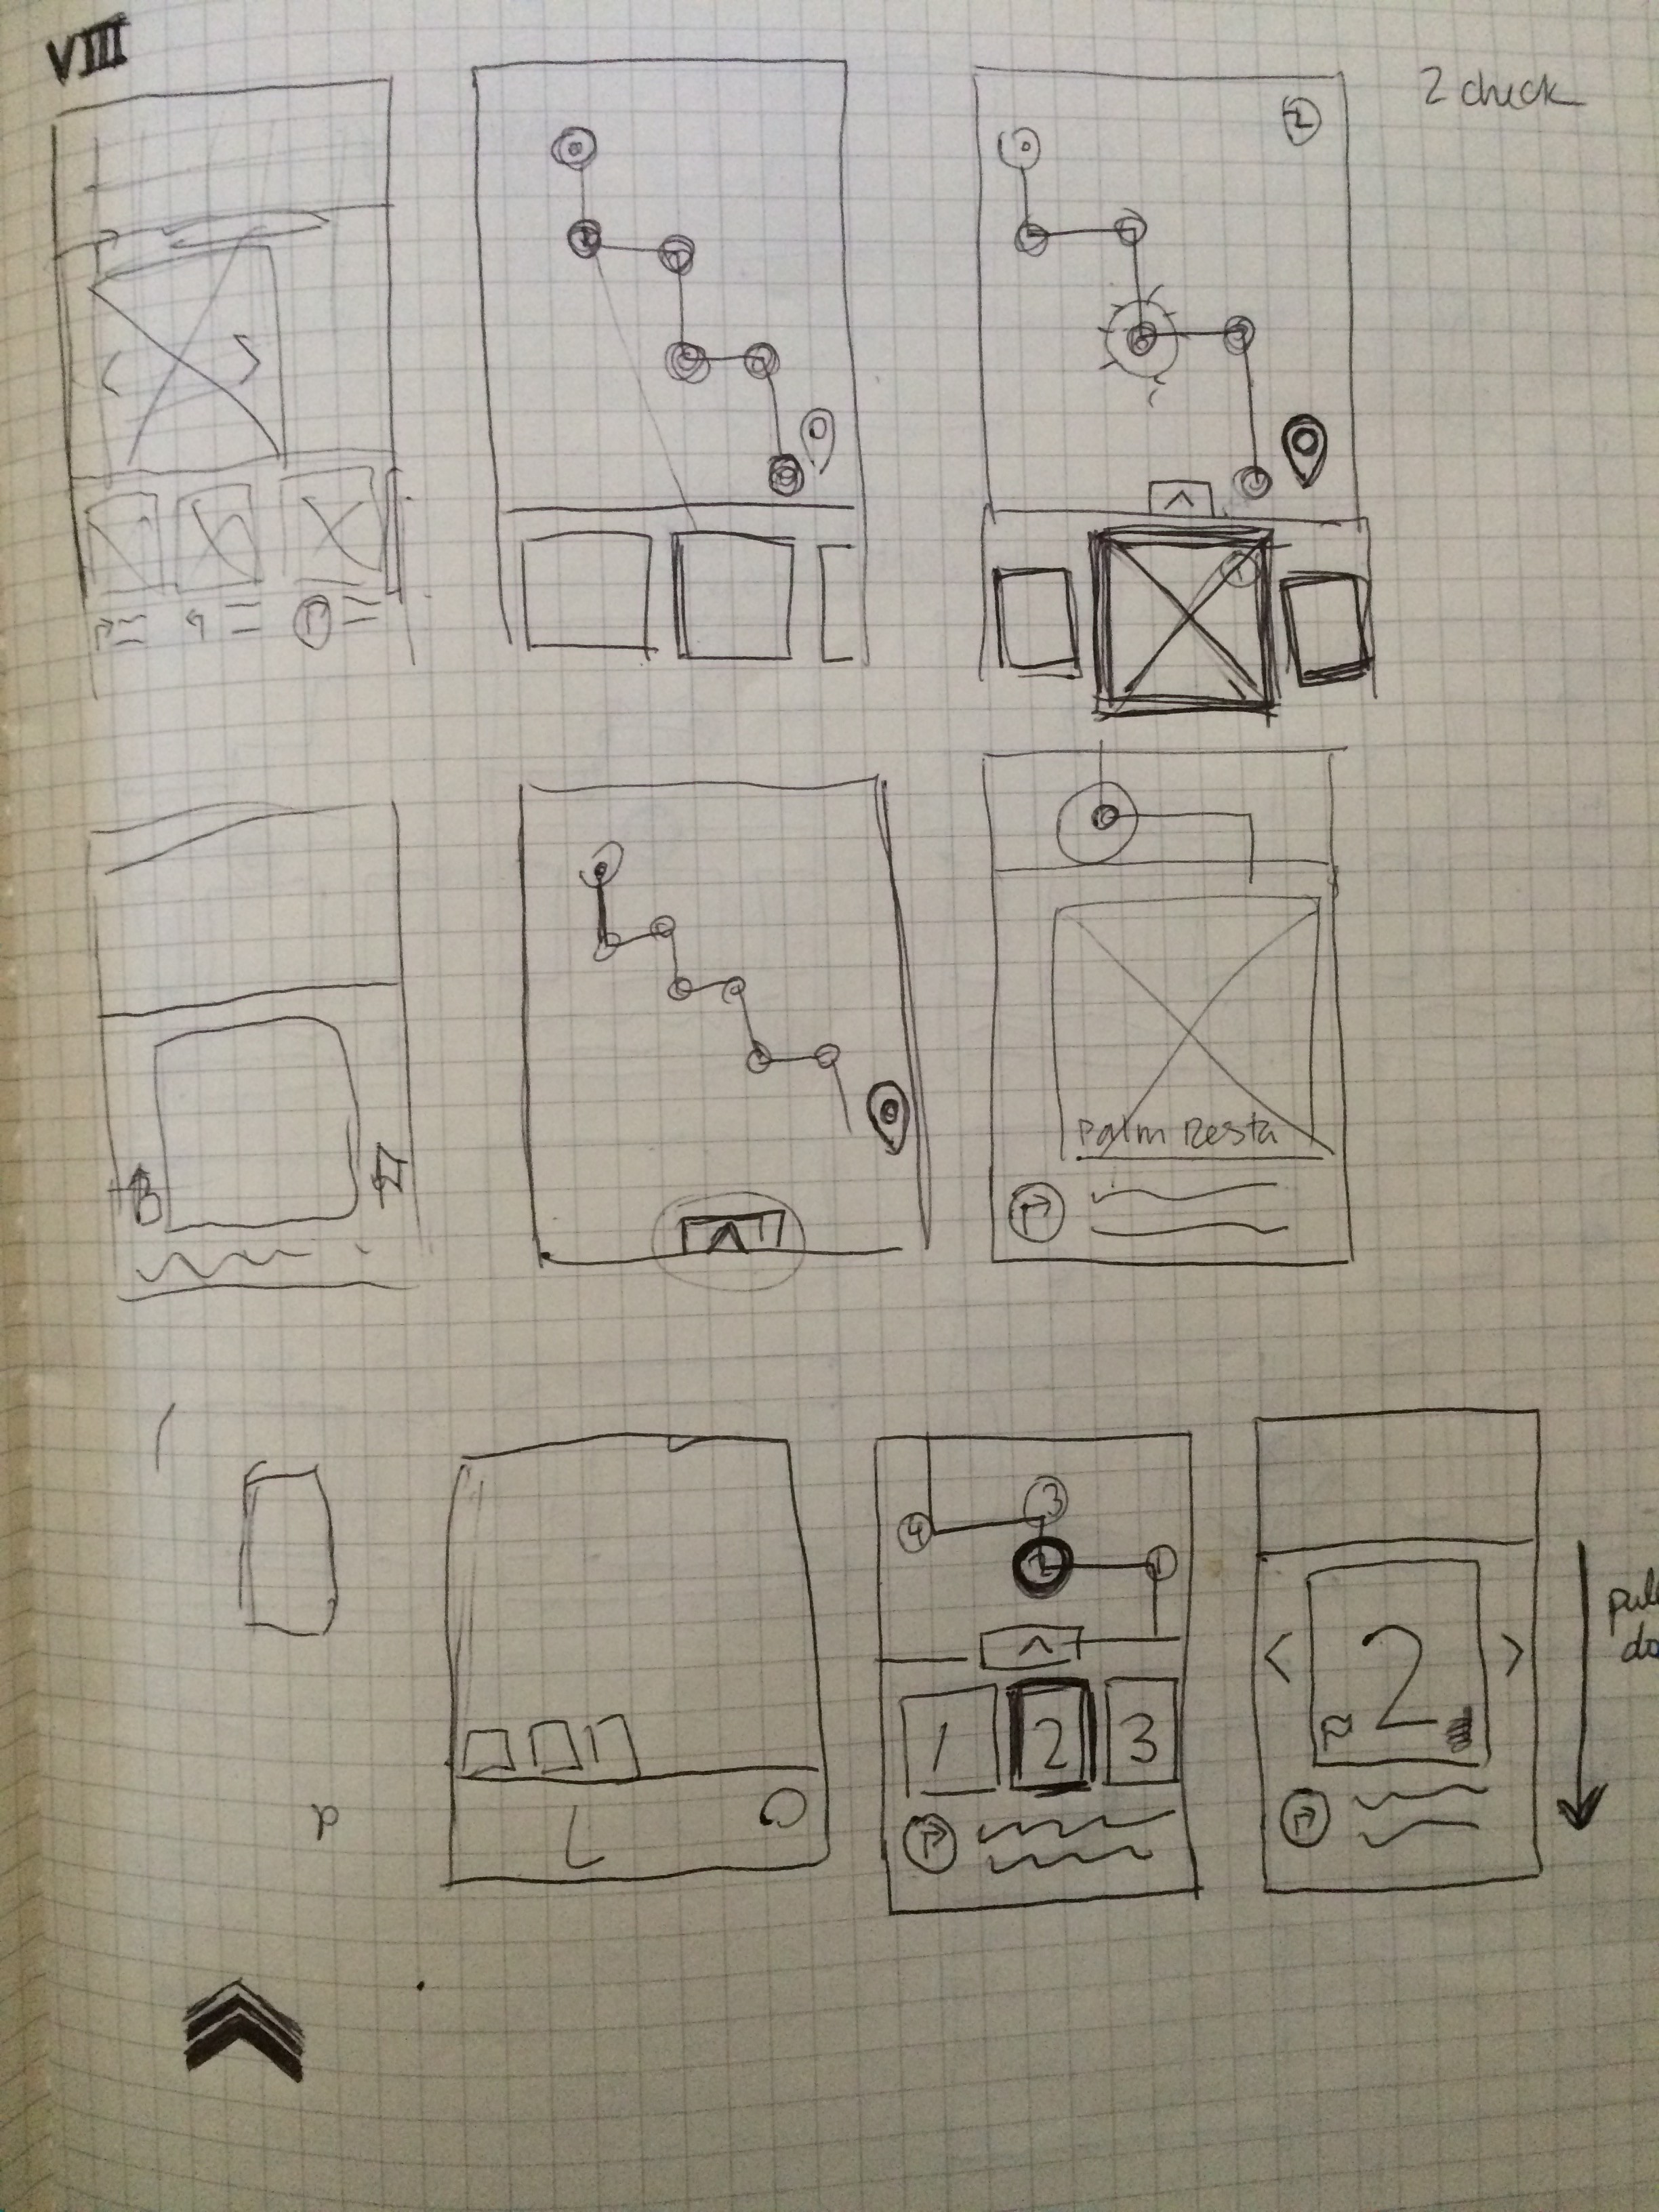 VIII
2 check
Palm Resta
4
3
2
1
1
2
3
2
pull
do